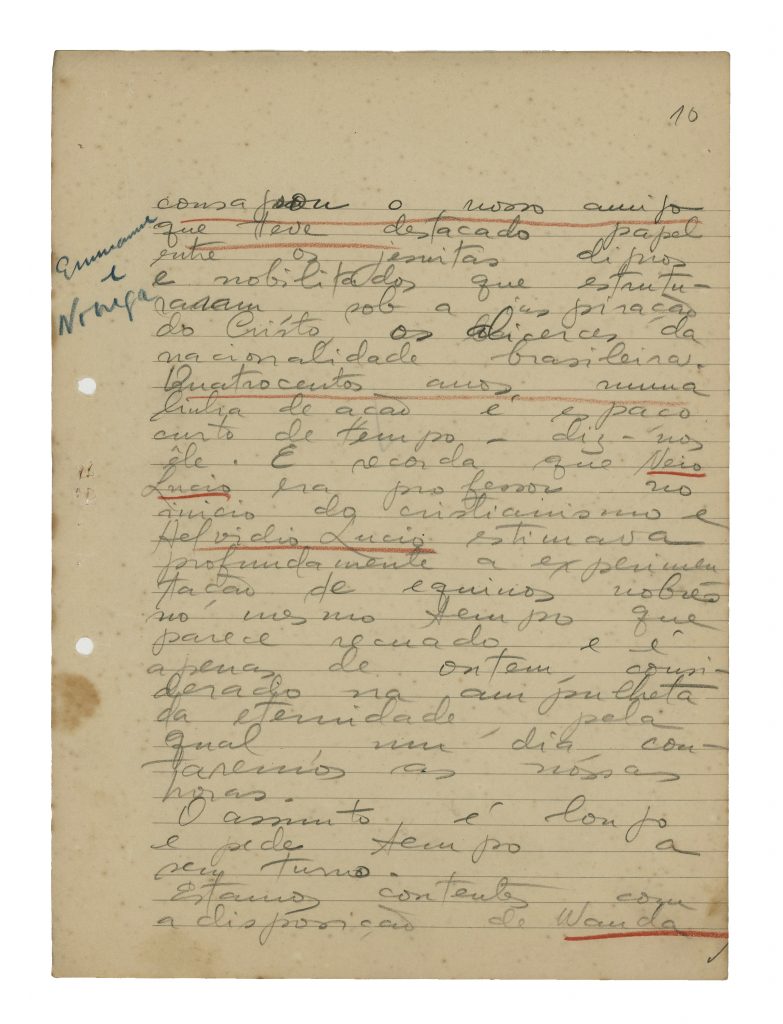 10
consagrou o nosso amigo
que teve destacado papel
entre os jesuitas dignos
e nobilitados que estrutu-
raram sob a inspiração
do Cristo, os alicerces da
nacionalidade brasileira.
Emmanuel
e
Nobrega
Quatrocentos anos, numa
linha de ação é espaço
curto de tempo - diz-nos
êle. E recorda que Neio
Lucio era professor no
inicio do cristianismo e
Helvidio Lucio estimava
profundamente a experimen
tação de equinos nobres
no mesmo tempo que
parece recuado e é
apenas de ontem, consi-
derado na ampulheta
da eternidade pela
qual um dia con-
taremos as nóssas
horas.
O assunto é longo
e pede tempo a
seu turno.
Estamos contentes com
a disposição de Wanda